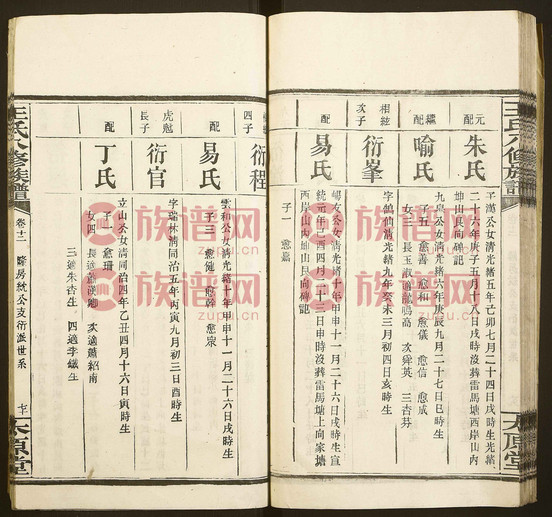 王氏八修族譜
太原堂
元配
朱氏
子萬公女清光緒五年己卯七月二十四日戌時生光緒
二十六年庚子五月十八日戌時沒葬雷馬塘西岸山內
坤山艮向碑記
繼配
喻氏
九皋公女清光緒六年庚辰九月二十七日巳時生
子五 愈善 愈和 愈儀 愈信 愈成
女三 長玉淑 次舜英 三杏芬
次子
衍峯
字鶴仙清光緒九年癸未三月初四日亥時生
配
易氏
暢友公女清光緒十年甲申十一月二十六日戌時生宣
統元年己酉四月二十三日申時沒葬雷馬塘上向家塘
西岸山內坤山艮向碑記
子一 愈嘉
四子
衍程
配
易氏
雲和公女清光緒十年甲申十一月二十六日戌時生
子三 愈健 愈幹 愈泉
虎魁
長子
衍官
字瑞林清同治五年丙寅九月初三日酉時生
配
丁氏
立山公女清同治四年乙丑四月十六日寅時生
子一 愈珊
女四 次適 紹南
三適朱杏生 四適李鐵生
王氏八修族譜
卷十二
房統公支衍派世系
太原堂
族譜网
zupu.cn